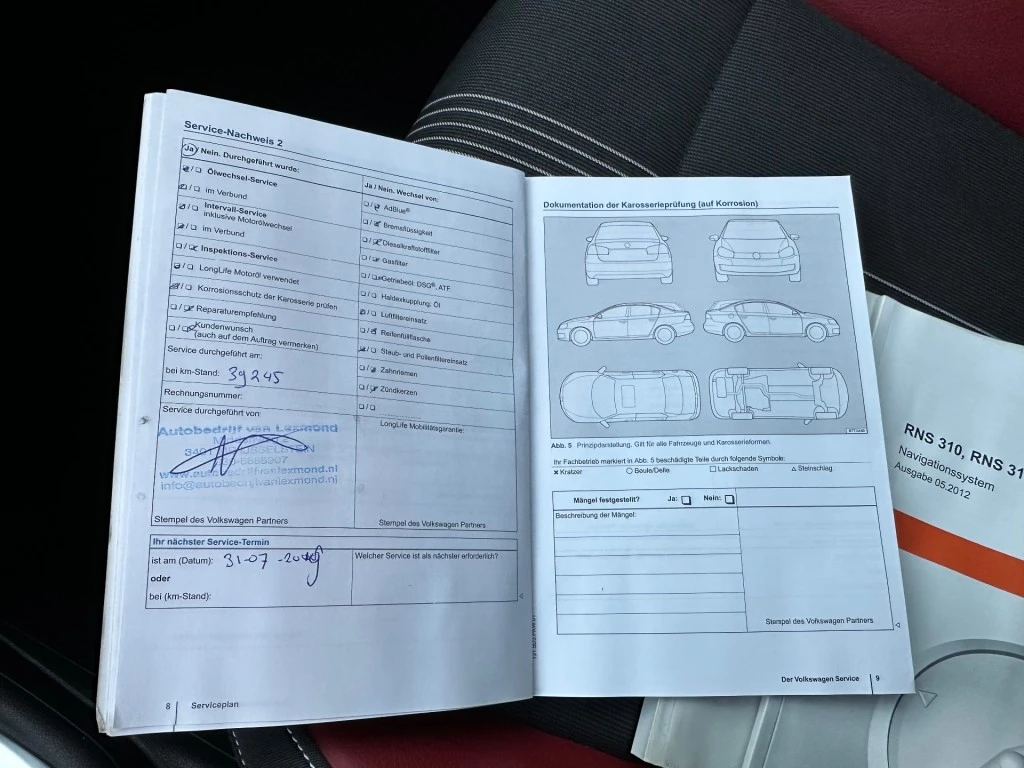 Service-Nachweis 2
Ja / Nein. Durchgeführt wurde:
Ölwechsel-Service
im Verbund
Intervall-Service
inklusive Motorölwechsel
im Verbund
Inspektions-Service
LongLife Motoröl verwendet
Korrosionsschutz der Karosserie prüfen
Reparaturempfehlung
Kundenwunsch
(auch auf dem Auftrag vermerken)
Service durchgeführt am:
bei km-Stand: 39245
Rechnungsnummer:
Service durchgeführt von:
Autobedrijf van Lexmond
IJSSELSTEIN
www.autobedrijfvanlexmond.nl
info@autobedrijfvanlexmond.nl
Stempel des Volkswagen Partners
Ja / Nein. Wechsel von:
AdBlue®
Bremsflüssigkeit
Dieselkraftstofffilter
Gasfilter
Getriebeöl: DSG®, ATF
Haldexkupplung: Öl
Luftfiltereinsatz
Reifenfüllflasche
Staub- und Pollenfiltereinsatz
Zahnriemen
Zündkerzen
LongLife Mobilitätsgarantie:
Stempel des Volkswagen Partners
Ihr nächster Service-Termin
ist am (Datum): 31-07
oder
bei (km-Stand):
Welcher Service ist als nächster erforderlich?
8 Serviceplan
Dokumentation der Karosserieprüfung (auf Korrosion)
Abb. 5 Prinzipdarstellung. Gilt für alle Fahrzeuge und Karosserieformen.
Ihr Fachbetrieb markiert in Abb. 5 beschädigte Teile durch folgende Symbole:
× Kratzer ○ Beule/Delle □ Lackschaden △ Steinschlag
Mängel festgestellt? Ja: Nein:
Beschreibung der Mängel:
Stempel des Volkswagen Partners
Der Volkswagen Service 9
RNS 310, RNS 31
Navigationssystem
Ausgabe 05.2012